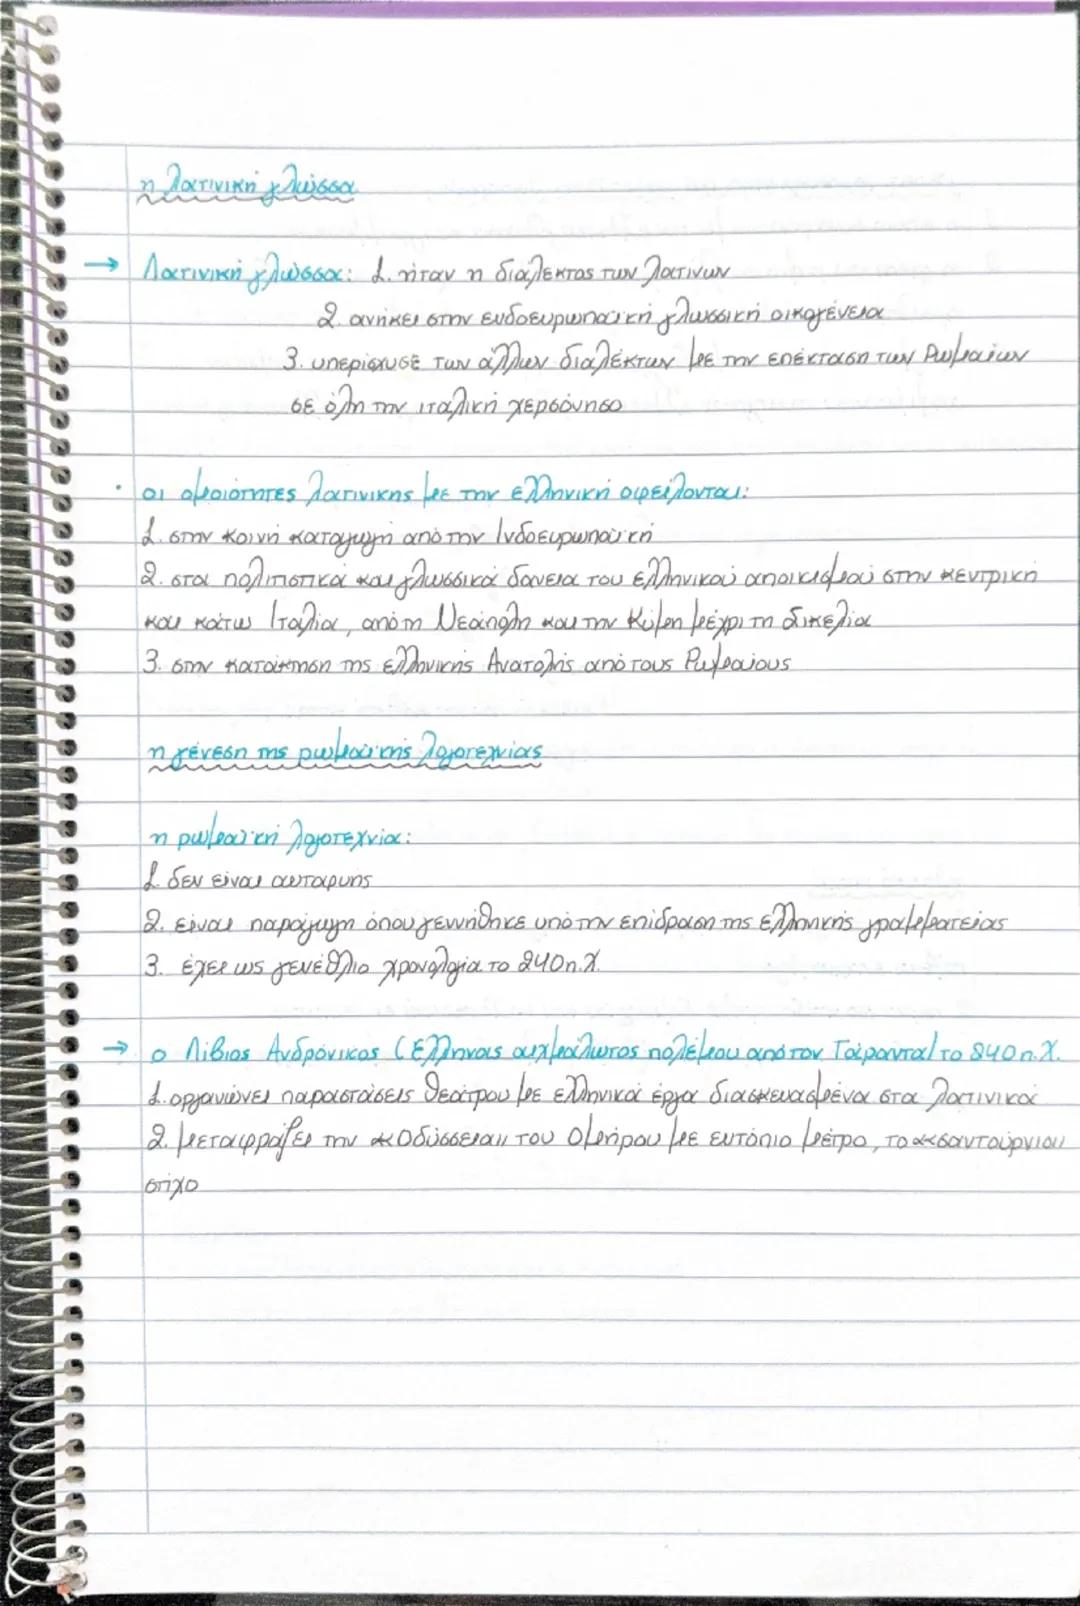 η λατινική γλώσσα
→ Λατινική γλώσσα: 1. ήταν η διάλεκτος των λατινων
2. ανήκει στην ευδοευρωπαϊκή γλωσσική οικογένεια
3. υπερίσχυσε των άλλων διαλέκτων με την επέκταση των Ρωμαίων
σε όλη την ιταλική χερσόνησο
· οι ομοιότητες λατινικης με την ελληνική οφείλονται:
1. στην κοινή καταγωγή από την Ινδοευρωπαϊκή
2. στα πολιτιστικά και γλωσσικά δάνεια του ελληνικού αποικισμού στην κεντρική
και κάτω Ιταλία, από τη Νεάπολη και την Κύμη μέχρι τη Σικελία
3. στην κατάκτηση της ελληνικής Ανατολής από τους Ρωμαίους
η γένεση της ρωμαϊκής λογοτεχνίας
η ρωμαϊκή λογοτεχνία:
1. δεν είναι αυταρυης
2. είναι παράγωγη όπου γεννήθηκε υπό την επίδραση της ελληνικής γραμματείας
3. έχει ως γενέθλιο χρονολογία το 240π.Χ.
→ ο Λίβιος Ανδρόνικος (Έλληνας αιχμάλωτος πολέμου από τον Τάραντα) το 240π.Χ.
1. οργανώνει παραστάσεις θεάτρου με ελληνικά έργα διασκευασμένα στα λατινικά
2. μεταφράζει την «Οδύσσεια» του Ομήρου με εντόπιο μέτρο, το «σαντούρνιο»
στίχο